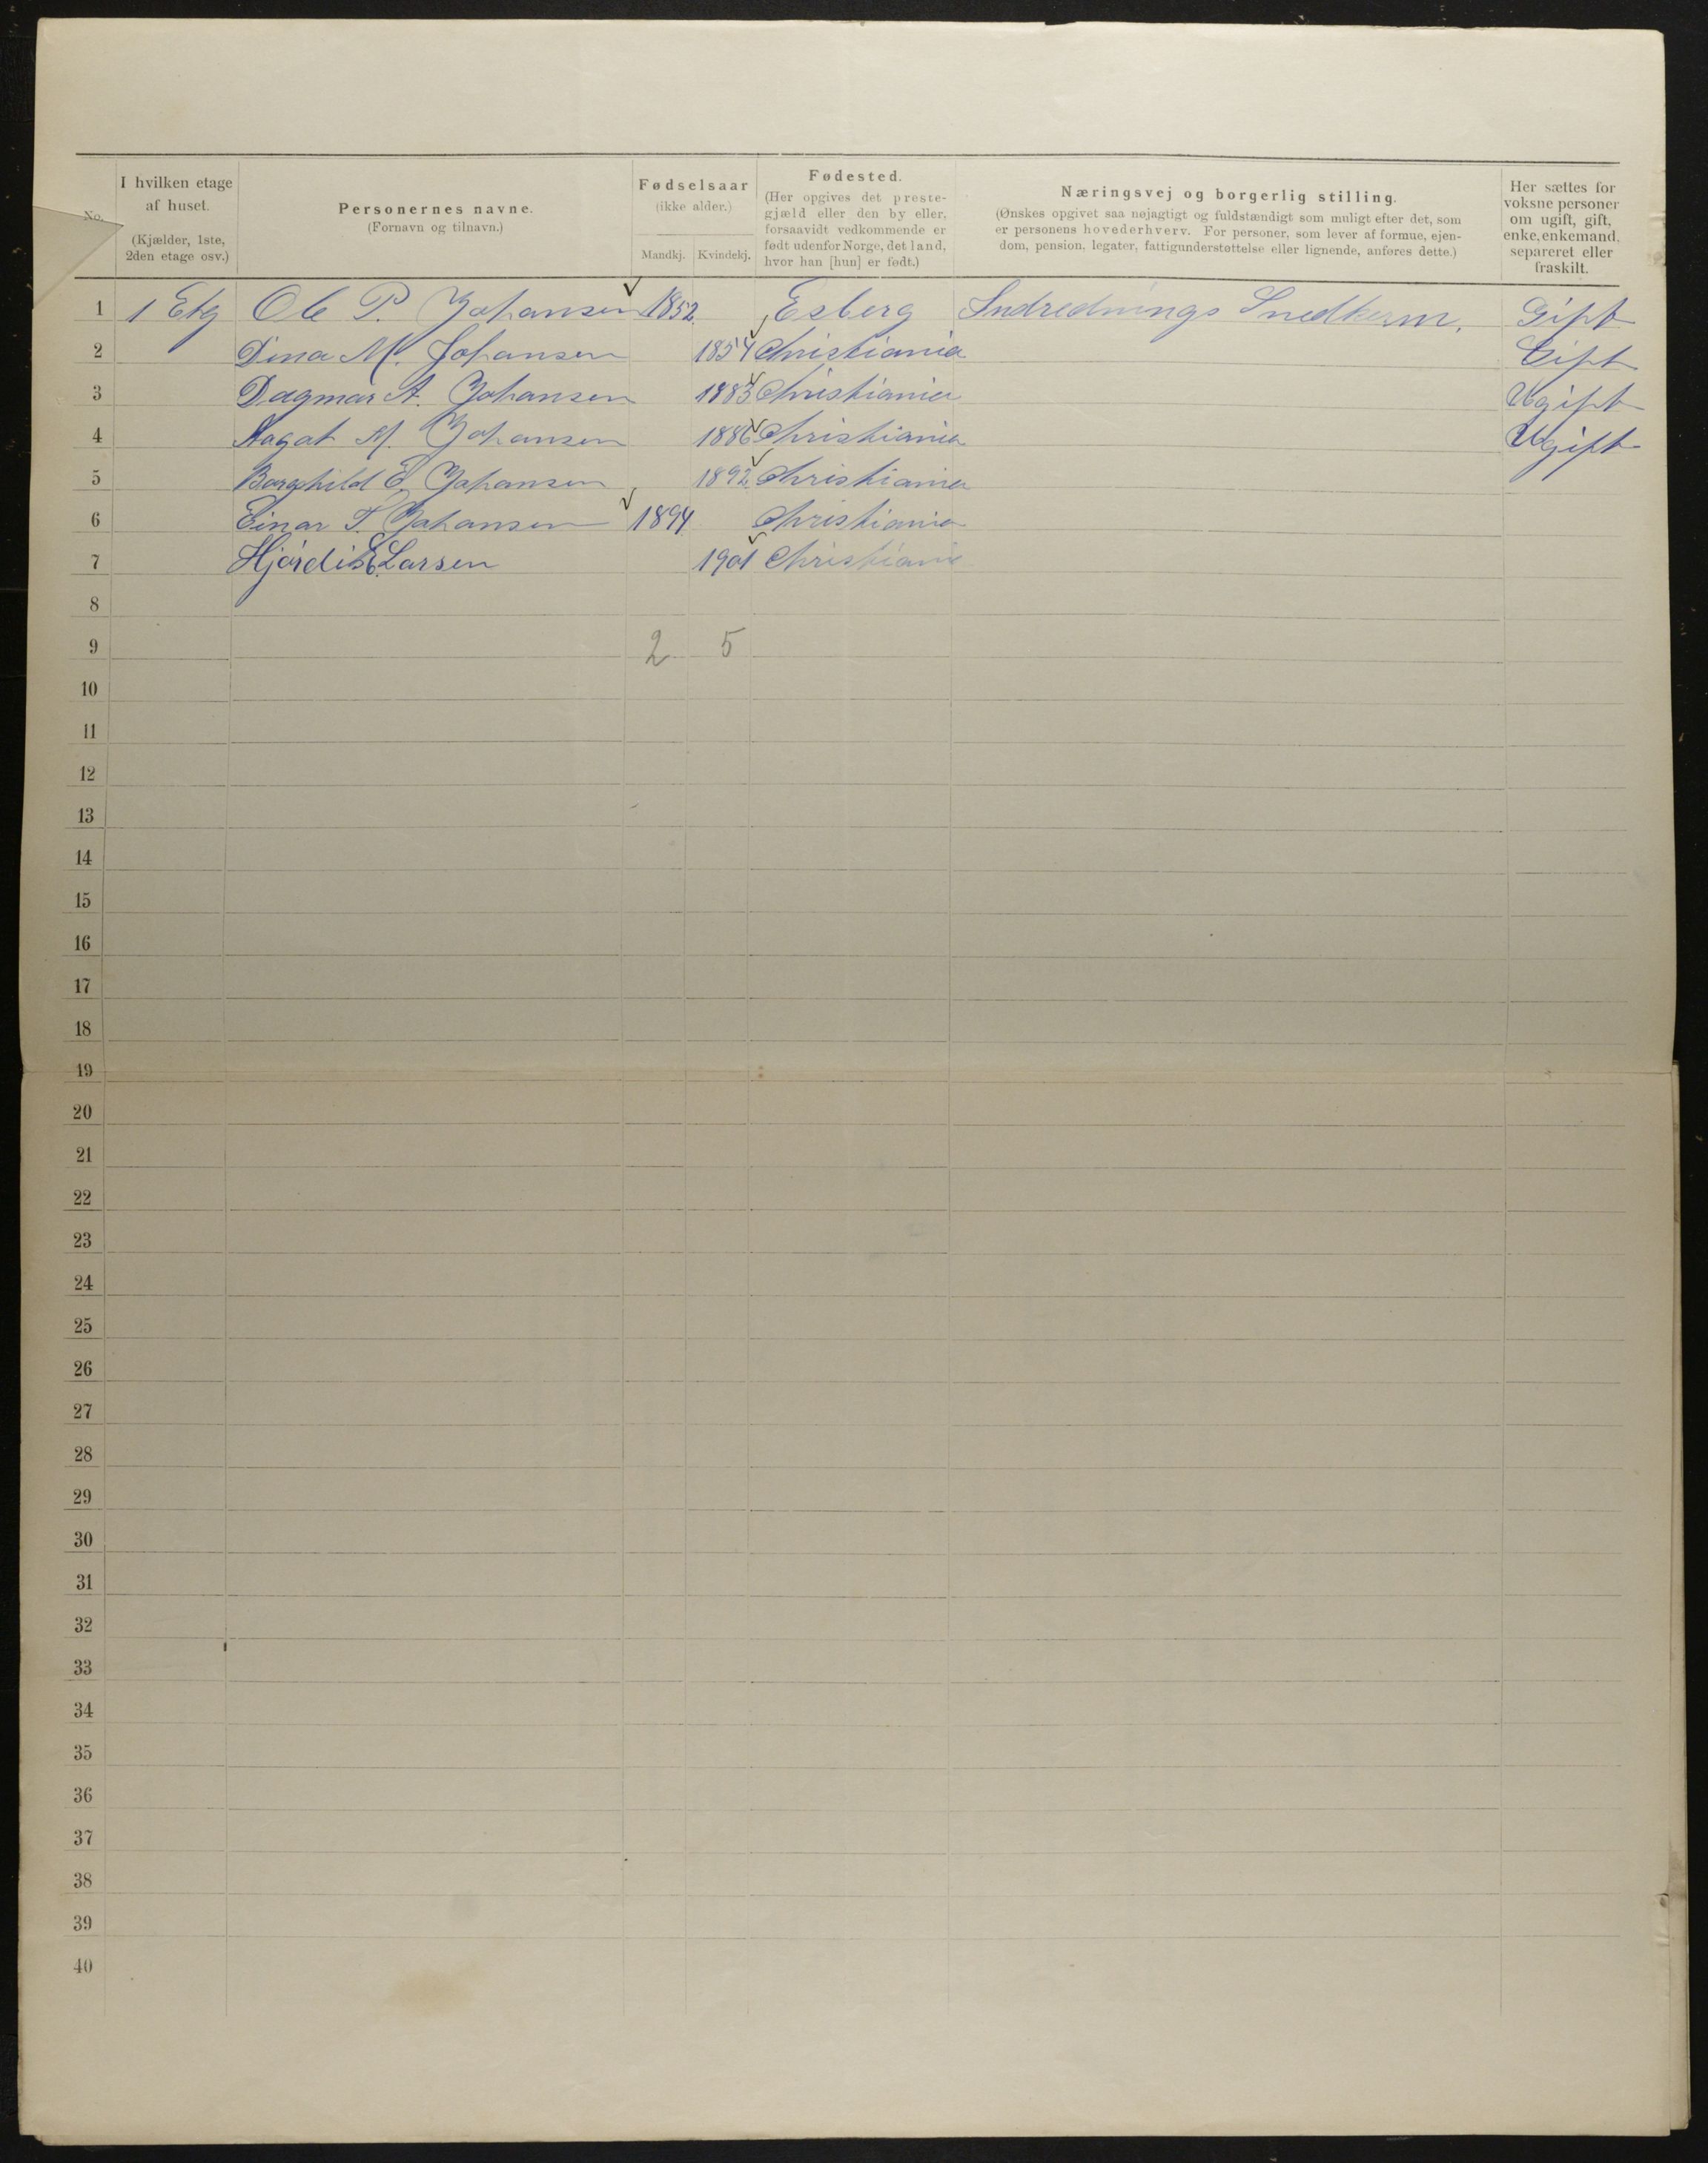 No.
I hvilken etage
af huset.
(Kjælder, 1ste,
2den etage osv.)
Personernes navne.
(Fornavn og tilnavn.)
Fødselsaar
(ikke alder.)
Mandkj. Kvindekj.
Fødested.
(Her opgives det preste-
gjæld eller den by eller,
forsaavidt vedkommende er
født udenfor Norge, det land,
hvor han [hun] er født.)
Næringsvej og borgerlig stilling.
(Ønskes opgivet saa nøjagtigt og fuldstændigt som muligt efter det, som
er personens hovederhverv. For personer, som lever af formue, ejen-
dom, pension, legater, fattigunderstøttelse eller lignende, anføres dette.)
Her sættes for
voksne personer
om ugift, gift,
enke, enkemand,
separeret eller
fraskilt.
1 1 Etg Ole P. Johansen 1852 Esberg Indrednings Snedkerm. Gift
2 Dina M. Johansen 1854 Christiania Gift
3 Dagmar A. Johansen 1883 Christiania Ugift
4 Aagot M. Johansen 1886 Christiania Ugift
5 Borghild E. Johansen 1892 Christiania
6 Einar T. Johansen 1894 Christiania
7 Hjørdis E. Larsen 1901 Christiania
8
9 2 5
10
11
12
13
14
15
16
17
18
19
20
21
22
23
24
25
26
27
28
29
30
31
32
33
34
35
36
37
38
39
40